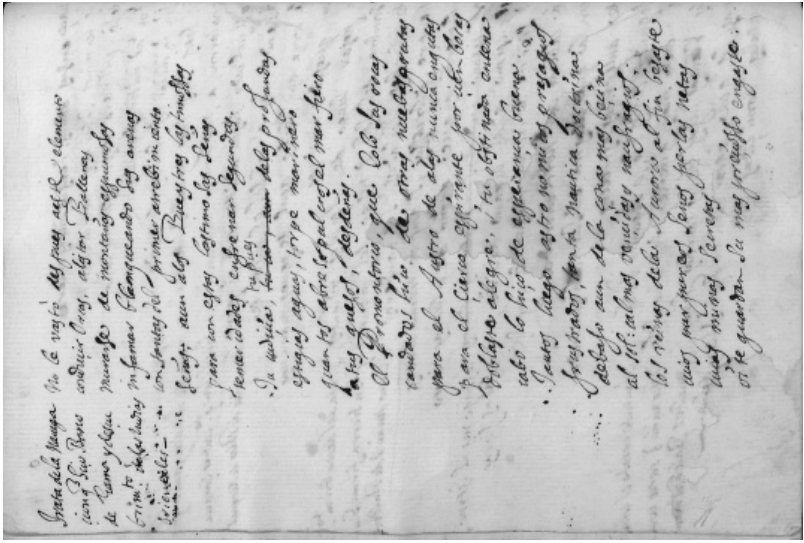 Trata de la nauega
cion q hizo Basco
de Gama y descu
brimto delas indias
orientales
No le bastó despues aeste elemento
conducir Orcas, alistar Ballenas
murarse de montañas espumosas
infamar blanqueando sus arenas
con tantas del primer atreuimiento
señas aun alos Bueytres lastimosas
para con estas lastimosas señas
temeridades enfrenar segundas.
Tu cudicia, tu pues delas profundas
estigias aguas, torpe marinero
quantos abre sepulcros el mar fiero
a tus guesos, desdeñas.
El Promontorio, que Eolo sus rocas
candados hizo de otras nuebas grutas
para el Austro de alas nunca enjutas
para el Cierço espirante por cien bocas
doblaste alegre, i tu obstinada entena
cabo lo hizo de esperança buena.
Tantos luego astronomicos presagios
frustrados, tanta nautica doctrina
debajo aun dela zona mas becina
al sol, calmas vencidas y naufragios.
los reinos dela Aurora al fin besaste
cuios purpureos senos perlas netas
cuias minas secretas
oi te guardan su mas precioso engaste.